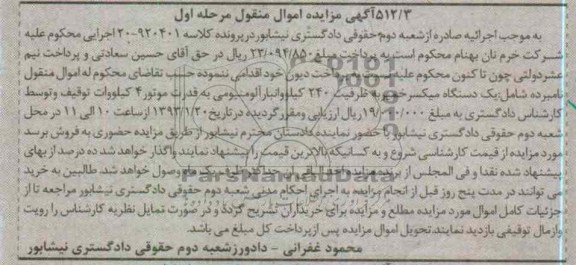 ۵۱۲/۳آگهی مزایده اموال منقول مرحله اول
به موجب اجرائیه صادره ازشعبه دوم حقوقی دادگستری نیشابور در پرونده کلاسه ۹۲۰۴۰۱-۲۰ اجرایی محکوم علیه
شرکت خرم نان بهنام محکوم است به پرداخت مبلغ ۲۳/۰۹۴/۸۵۰ ریال در حق آقای حسین سعادتی و پرداخت نیم
عشردولتی چون تا کنون محکوم علیه پرداخت دیون خود اقدامی ننموده حسب تقاضای محکوم له اموال منقول
نامبرده شامل: یک دستگاه میکسرخمیر به ظرفیت ۲۴۰ کیلووانبار آلومینومی به قدرت موتور ۴ کیلووات توقیف وتوسط
کارشناس دادگستری به مبلغ ریال ارزیابی ومقررگردیده درتاریخ ۱۳۹۳/۱/۲۰ ازساعت ۱۰ الی ۱۱ در محل
شعبه دوم حقوقی دادگستری نیشابور با حضور نماینده دادستان محترم نیشابور از طریق مزایده حضوری به فروش برسد
مورد مزایده از قیمت کارشناسی شروع و به کسانیکه بالاترین قیمت را پیشنهاد نمایند واگذار خواهد شد ده درصد از بهای
پیشنهاد شده نقدا و فی المجلس از برنده مزایده وصول خواهد شد. طالبین به خرید
می توانند در مدت پنج روز قبل از انجام مزایده به اجرای احکام مدنی شعبه دوم حقوقی دادگستری نیشابور مراجعه تا از
جزئیات کامل اموال مورد مزایده مطلع و مزایده برای خریداران تشریح گردد و در صورت تمایل نظریه کارشناس را رویت
وازمال توقیفی بازدید نمایند.تحویل اموال مزایده پس ازپرداخت کل مبلغ می باشد.
محمود غفرانی - دادورزشعبه دوم حقوقی دادگستری نیشابور